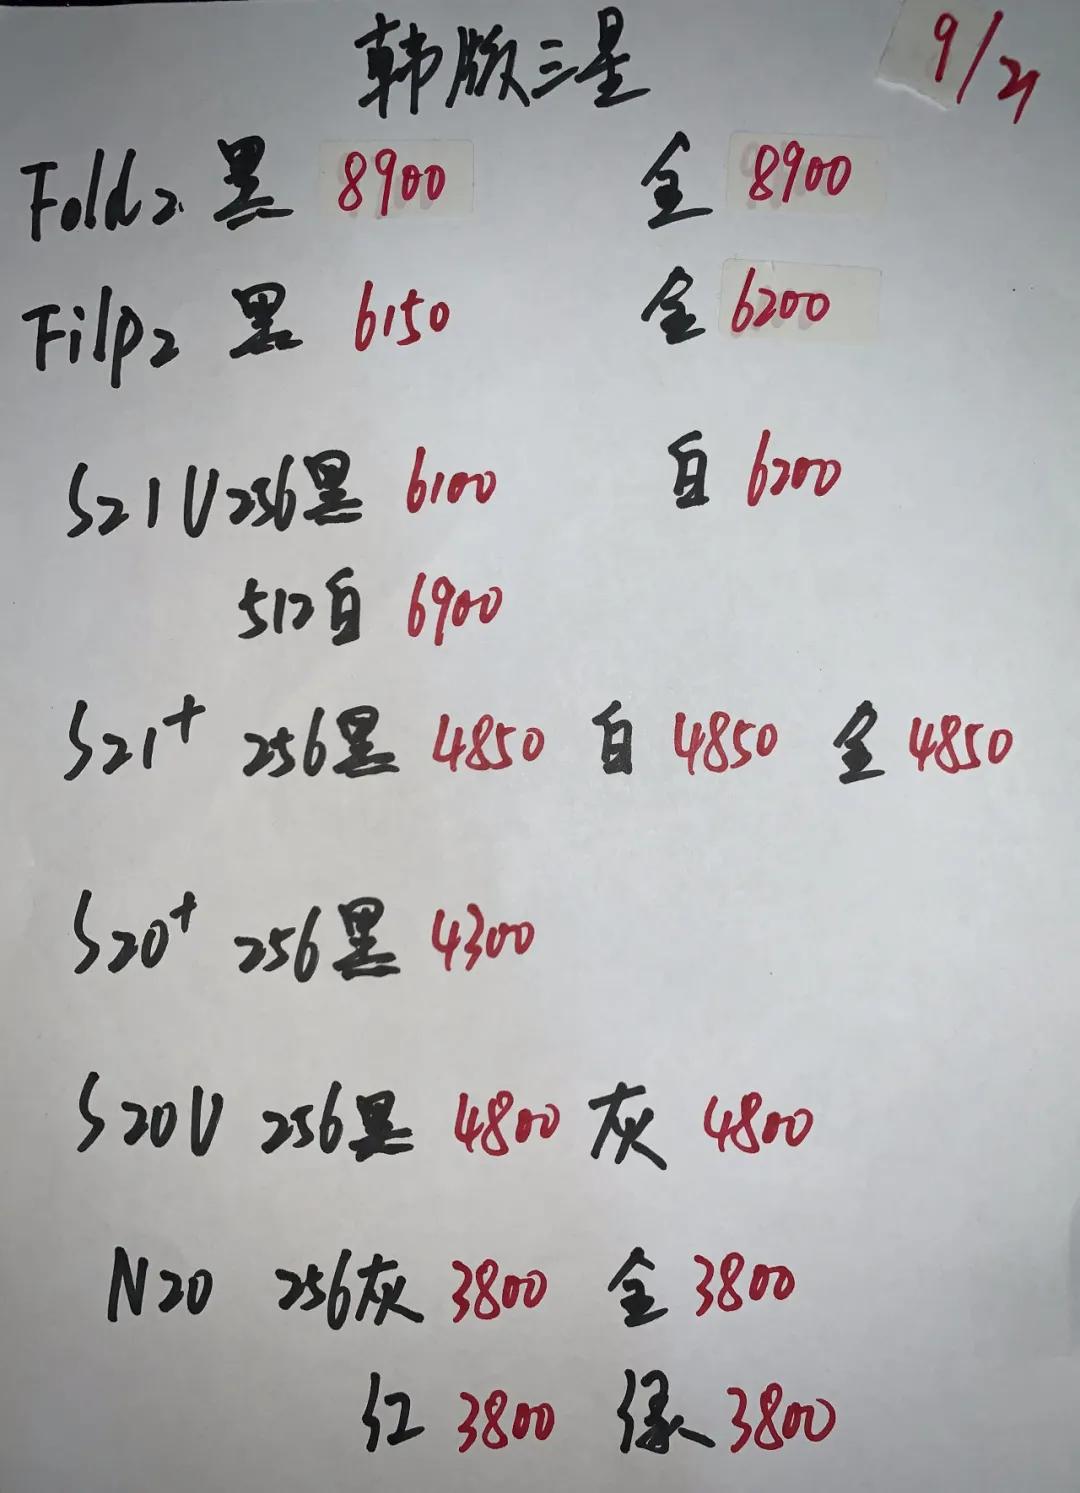 韩版三星 9/21
Fold2 黑 8900 金 8900
Filp2 黑 6150 金 6200
S21U 256黑 6100 白 6200
512白 6900
S21+ 256黑 4850 白 4850 金 4850
S20+ 256黑 4300
S20U 256黑 4800 灰 4800
N20 256灰 3800 金 3800
红 3800 绿 3800